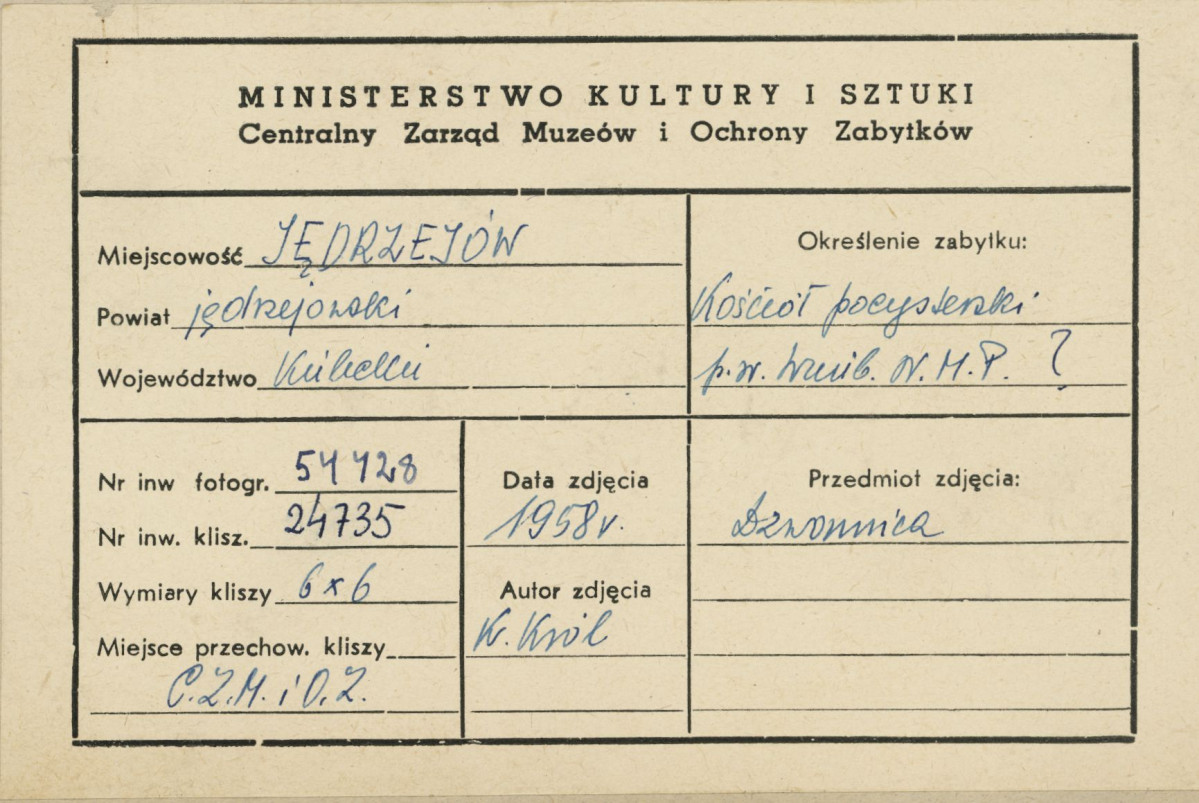 MINISTERSTWO KULTURY I SZTUKI
Centralny Zarząd Muzeów i Ochrony Zabytków
Miejscowość JĘDRZEJÓW
Powiat jędrzejowski
Województwo Kielecki
Określenie zabytku:
Kościół pocysterski
p.w. Wnieb. N.M.P. ?
Nr inw fotogr. 54428
Nr inw. klisz. 24735
Wymiary kliszy 6x6
Miejsce przechow. kliszy
C.Z.M. i O.Z.
Data zdjęcia
1958 r.
Autor zdjęcia
K. Król
Przedmiot zdjęcia:
Dzwonnica